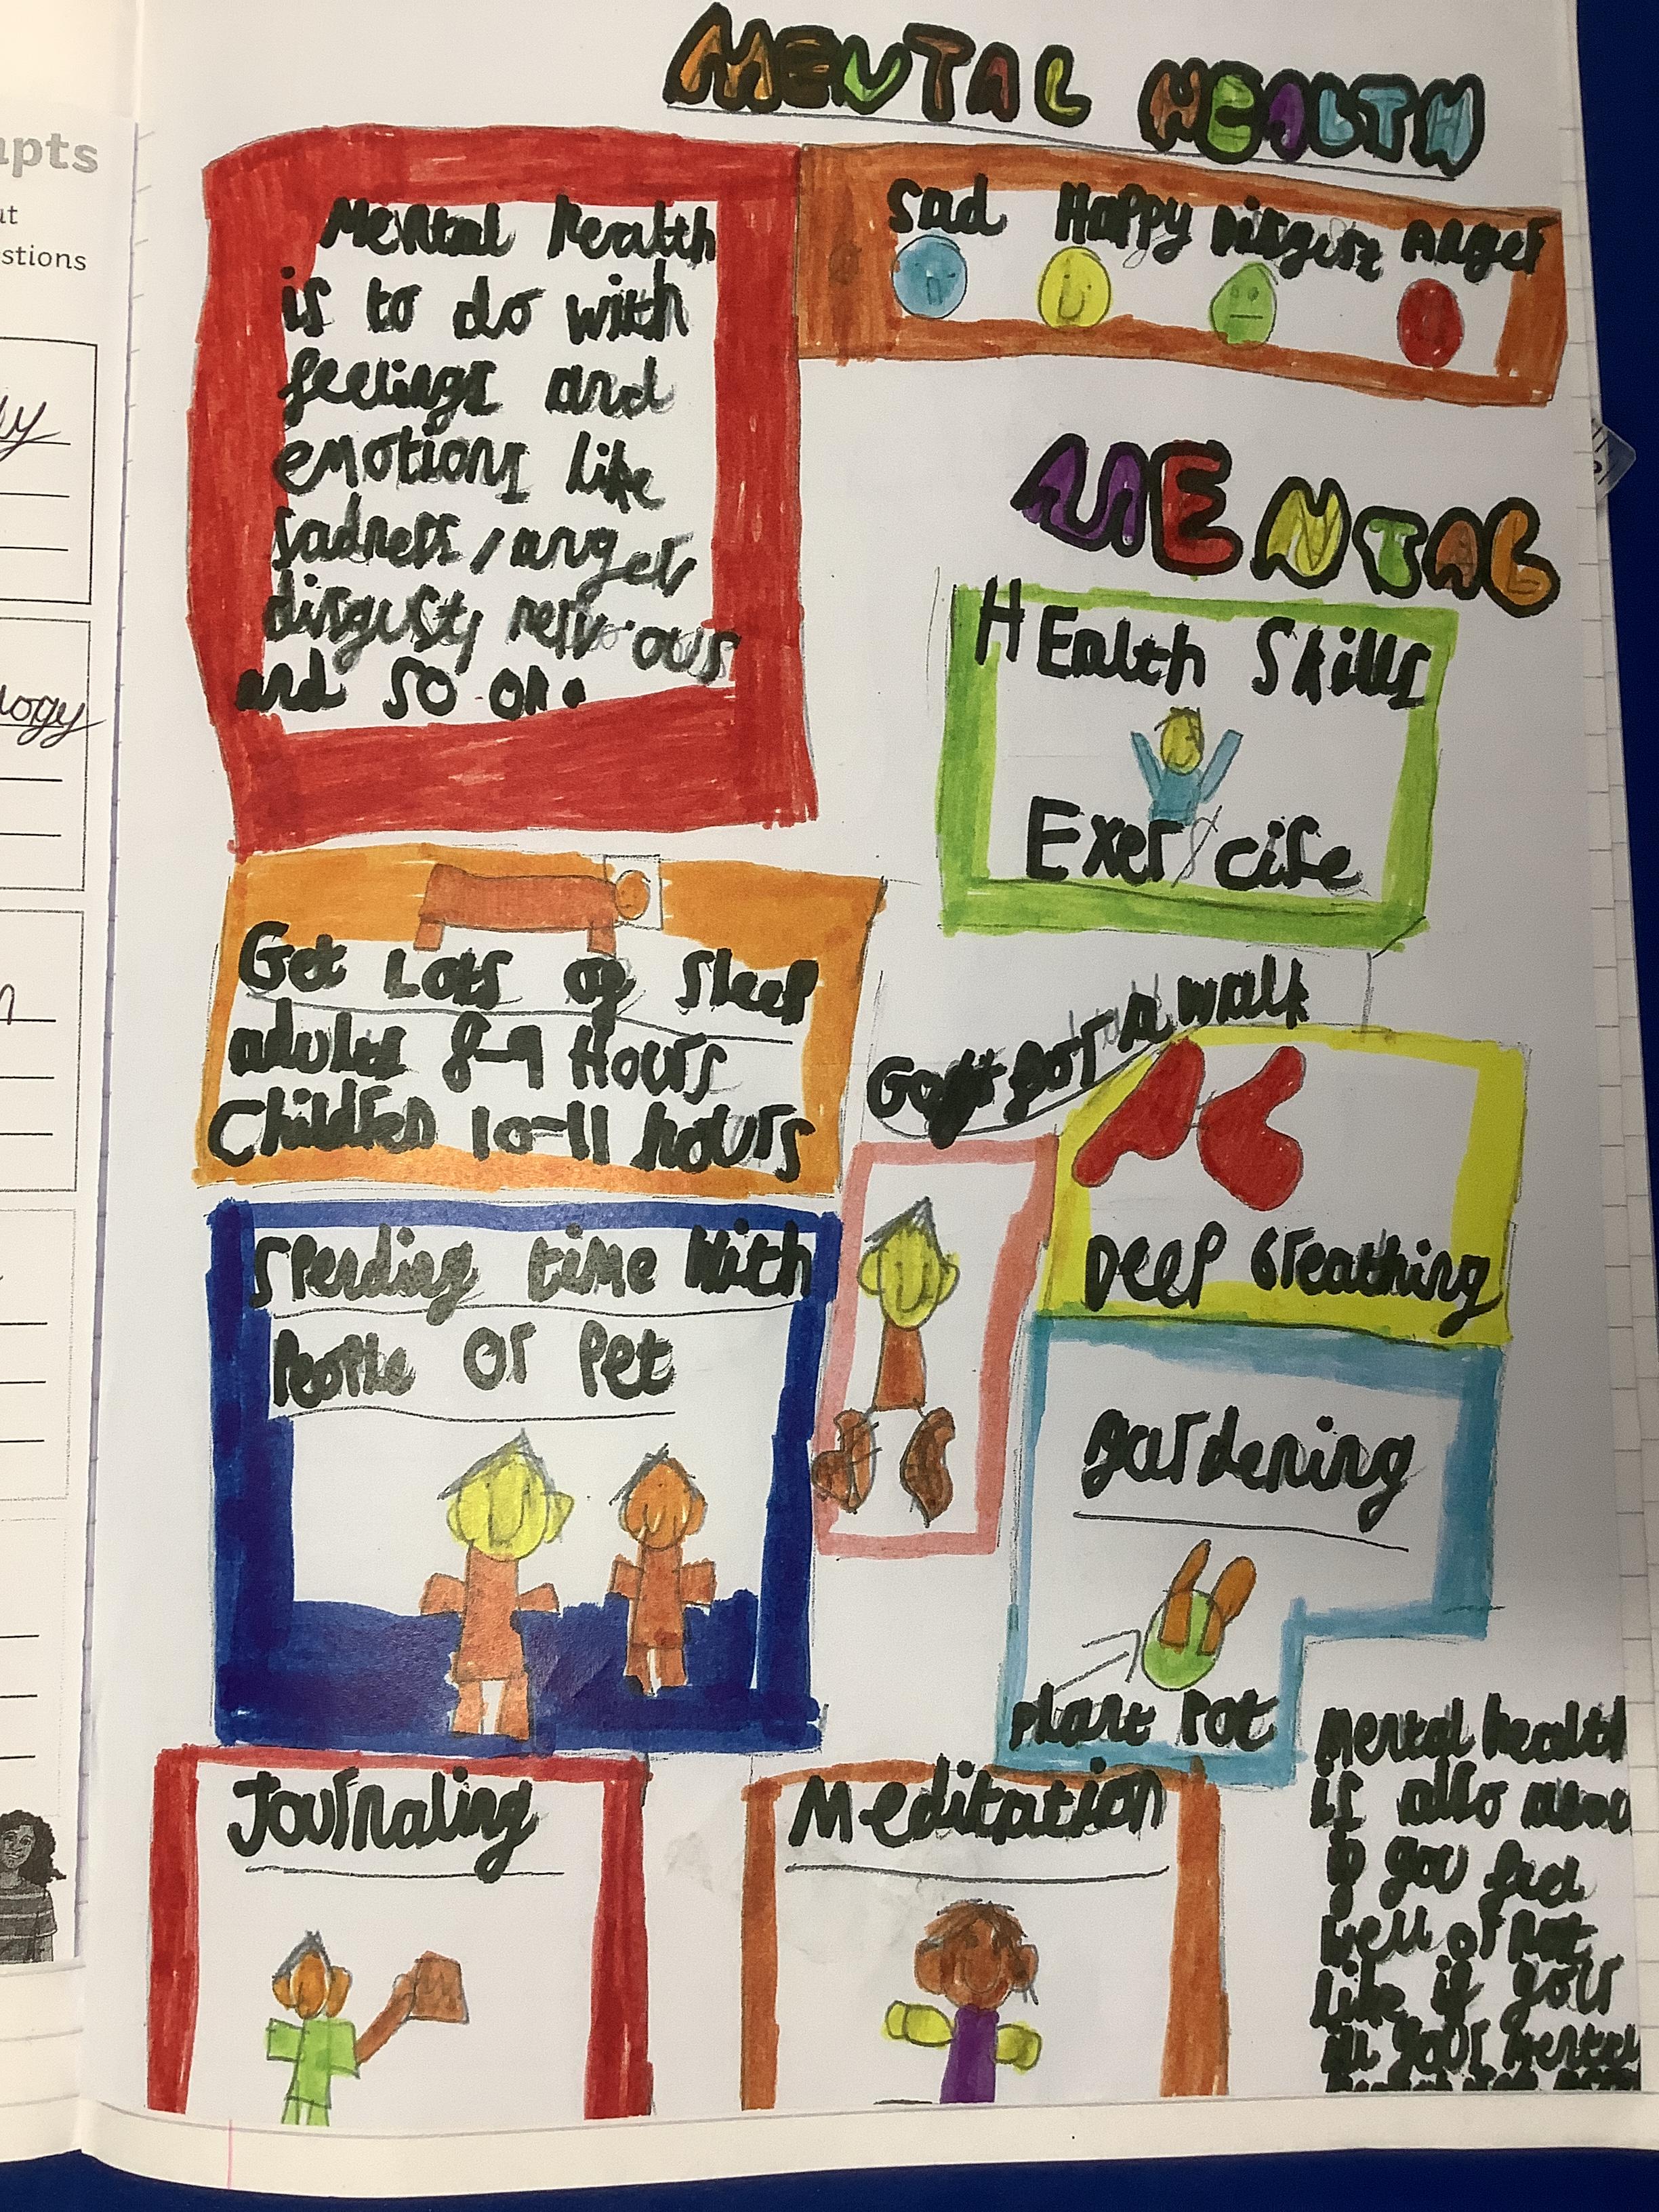 MENTAL HEALTH
Mental health
is to do with
feelings and
emotions like
sadness, anger,
disgust, nervous
and so on.
Sad Happy Disgust Anger
MENTAL
HEalth Skills
Exercise
Get Lots of Sleep
adults 8-9 Hours
Children 10-11 hours
Go for a walk
Deep breathing
Spending time With
People or Pet
gardening
Plant Pot
Journaling
Meditation
Mental health
is also
if you feel
well or not
like if your
ill your mental
apts
ut
stions
ly
logy
n